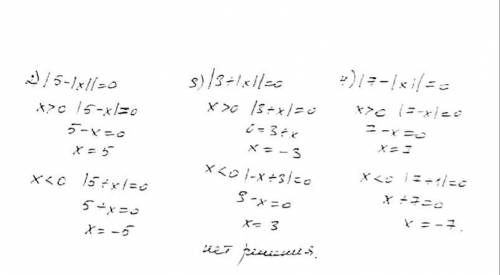 2) |5-|x||=0
x>0 |5-x|=0
5-x=0
x=5
x<0 |5+x|=0
5+x=0
x=-5
3) |3+|x||=0
x>0 |3+x|=0
0=3+x
x=-3
x<0 |-x+3|=0
3-x=0
x=3
нет решения.
4) |7-|x||=0
x>0 |7-x|=0
7-x=0
x=7
x<0
x+7=0
x=-7.